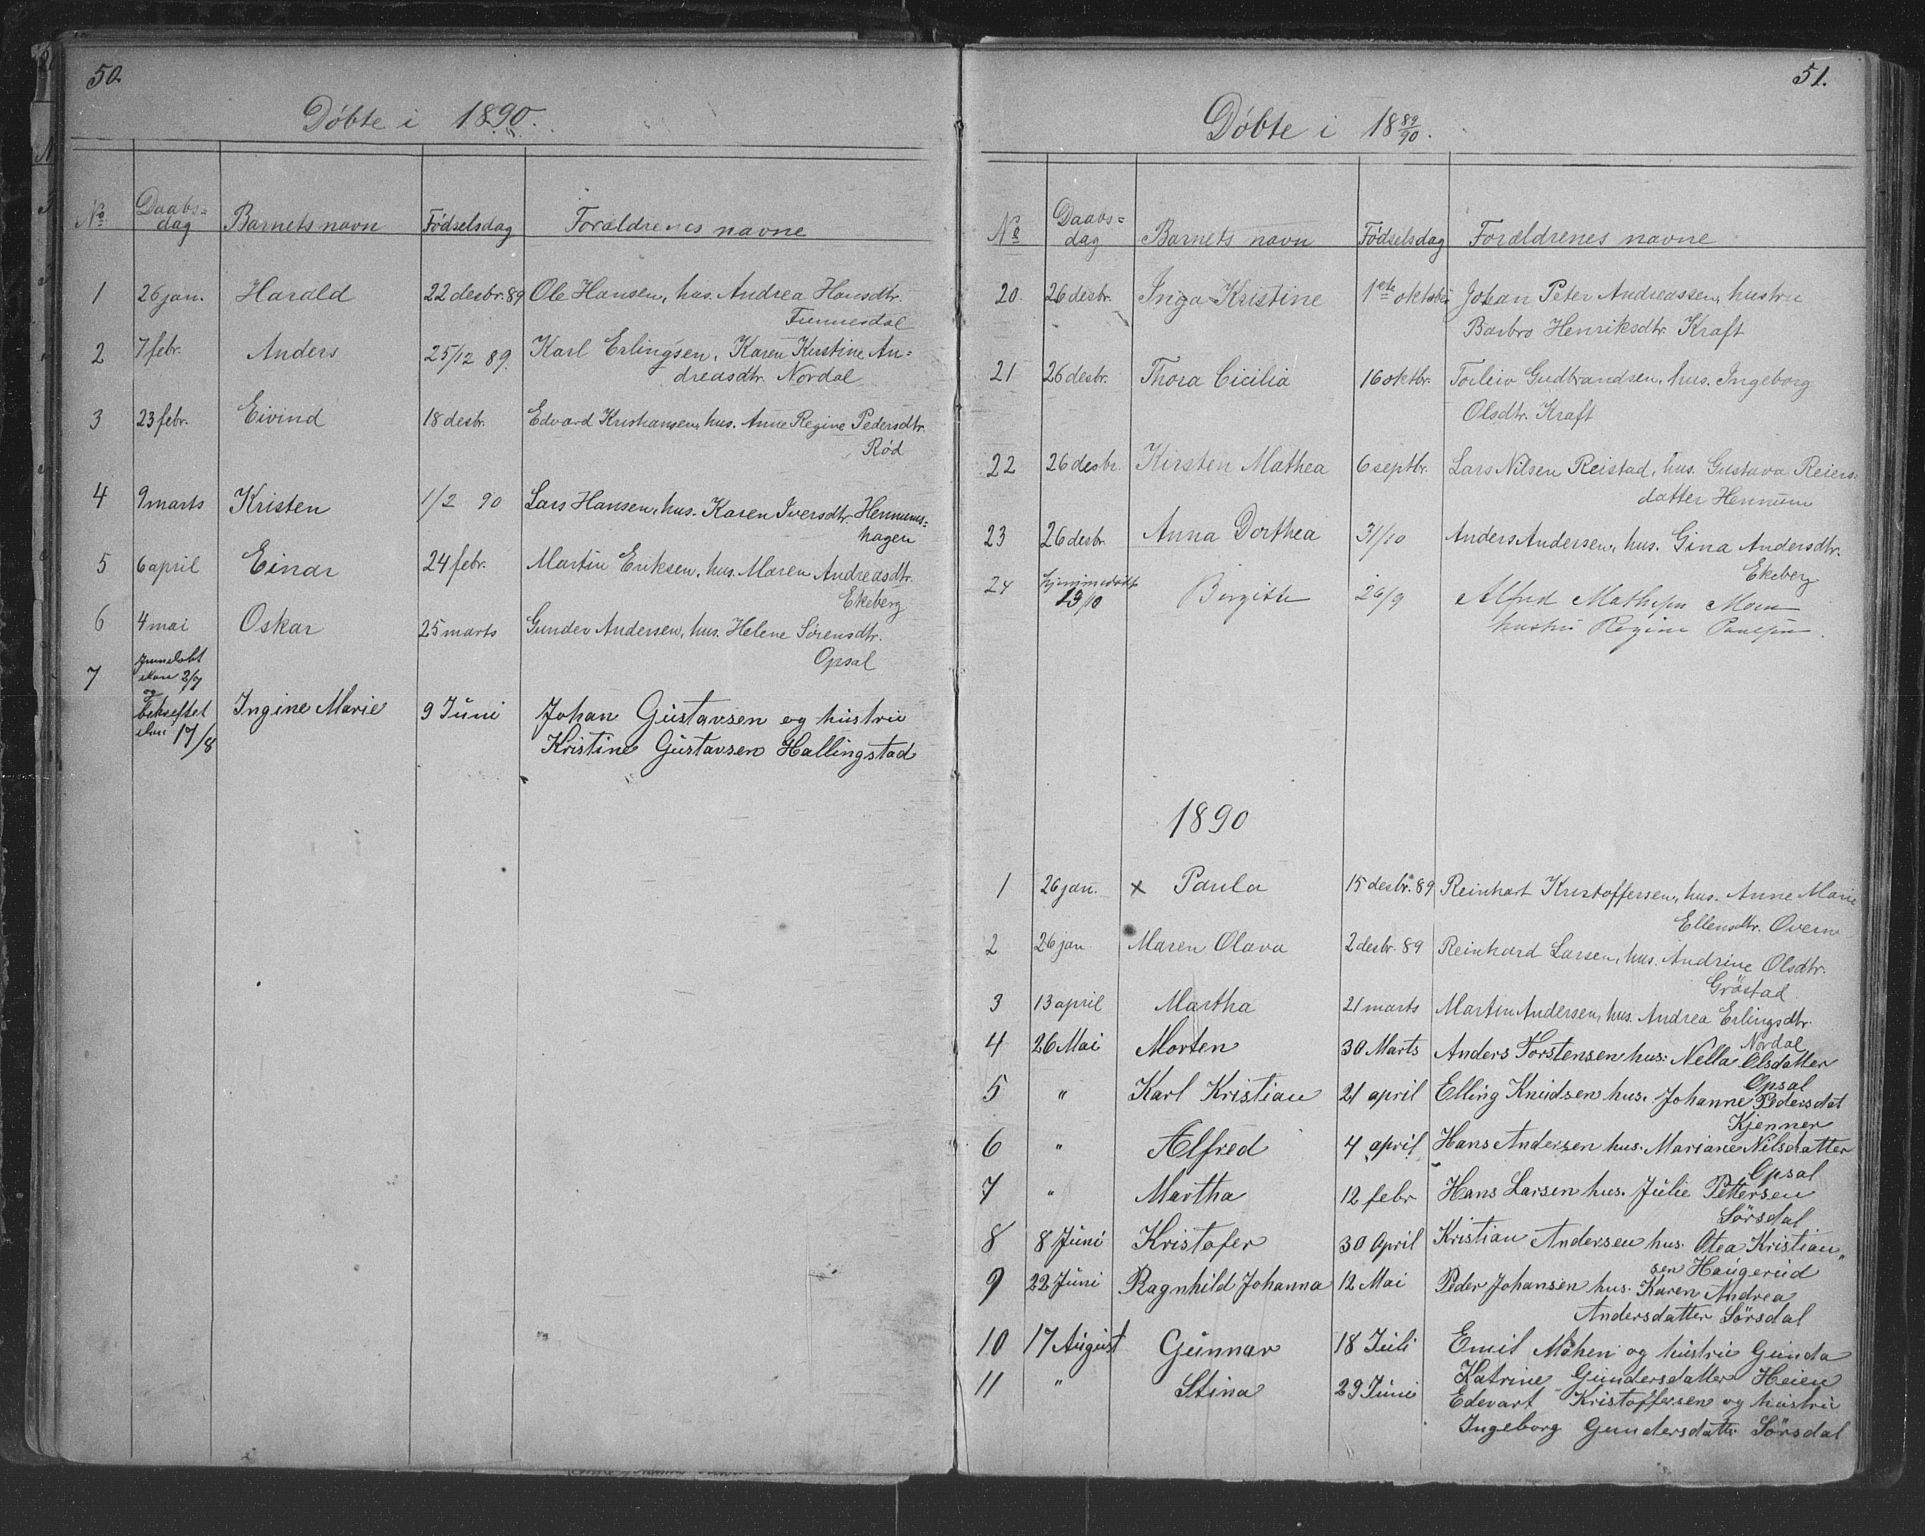 50.
Döbte i 1890.
No. Daabs=dag Barnets navn Födselsdag Forældrenes navne
1 26 jan. Harald 22 desbr. 89 Ole Hansen, hus. Andrea Hansdtr.
2 7 febr. Anders 25/12 89. Karl Erlingsen, Karen Kirstine An=
dreasdtr. Nordal
3 23 febr. Eivind 18 desbr. Edvard Kristiansen, hus. Anne Regine Pedersdtr.
Röd
4 9 marts Kristen 1/2 90 Lars Hansen, hus. Karen Iversdtr. Hennums=
hagen
5 6 april Einar 24 febr. Martin Eriksen, hus. Maren Andreasdtr.
Ekeberg
6 4 mai Oskar 25 marts Gunder Andersen, hus. Helene Sörensdtr.
Opsal
7 2/7
og
bekreftet
17/8 Ingine Marie 9 Juni Johan Gustavsen og hustru
Kristine Gustavsen Hallingstad
51.
Döbte i 18 89/90.
No Daabs=dag Barnets navn Födselsdag Forældrenes navne
20. 26 desbr. Inga Kristine 1ste oktober Johan Peter Andreassen, hustru
Barbro Henriksdtr. Kraft
21 26 desbr. Thora Cicilia 16 oktbr. Torleiv Gudbrandsen, hus. Ingeborg
Olsdtr. Kraft
22 26 desbr. Kirsten Mathea 6 septbr. Lars Nilsen Reistad, hus. Gustava Reiers=
datter Hennum
23 26 desbr. Anna Dorthea 31/10 Anders Andersen, hus. Gina Andersdtr.
Ekeberg
24 hjemmedöbt
19/10 Birgitte 26/9 Alfred Moen
hustru Regine Paulsen.
1890
1 26 jan. x Paula 15 desbr. 89 Reinhart Kristoffersen, hus. Anne Marie
Ellensdtr.
2 26 jan. Maren Olava 2 desbr. 89 Reinhard Larsen, hus. Andrine Olsdtr.
Gröstad
3 13 april Martha 21 marts Martin Andersen, hus. Andrea Erlingsdtr.
Nordal
4 26 Mai Morten 30 Marts Anders Torstensen hus. Nella Olsdatter
Opsal
5 " Karl Kristian 21 april Elling Knudsen hus. Johanne Pedersdat
Kjenner
6 " Alfred 4 april Hans Andersen hus. Mariane Nilsdatter
Opsal
7 " Martha 12 febr Hans Larsen hus. Julie Pettersen
Sörsdal
8 8 Juni Kristofer 30 April Kristian Andersen hus. Otea Kristian"
sen Haugerud
9 22 Juni Ragnhild Johanna 12 Mai Peder Johansen hus. Karen Andrea
Andersdatter Sörsdal
10 17 August Gunnar 18 Juli Emil og hustru Gunda
Katrine Gundersdatter Heien
11 " Stina 29 Juni Edevart Kristoffersen og hustru
Ingeborg Gundersdatt. Sörsdal